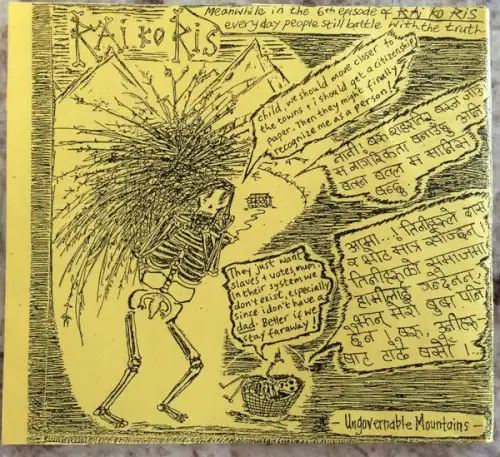 RAi ko RiS
Meanwhile in the 6th episode of RAi ko RiS
everyday people still battle with the truth
child, we should move closer to
the towns + i should get a citizenship
paper. then they might finally
recognize me as a person!
नानी! बरु
म नागरिकता बनाउँछु अनि
They just want
slaves + votes, mum.
In their system we
don't exist, especially
since i don't have a
dad. Better if we
stay far away!
आमा...
हामीलाई गद्दैनन्,
मेरो बुबा पनि
छैन
बाट टाढै बसौं !..
- Ungovernable Mountains -